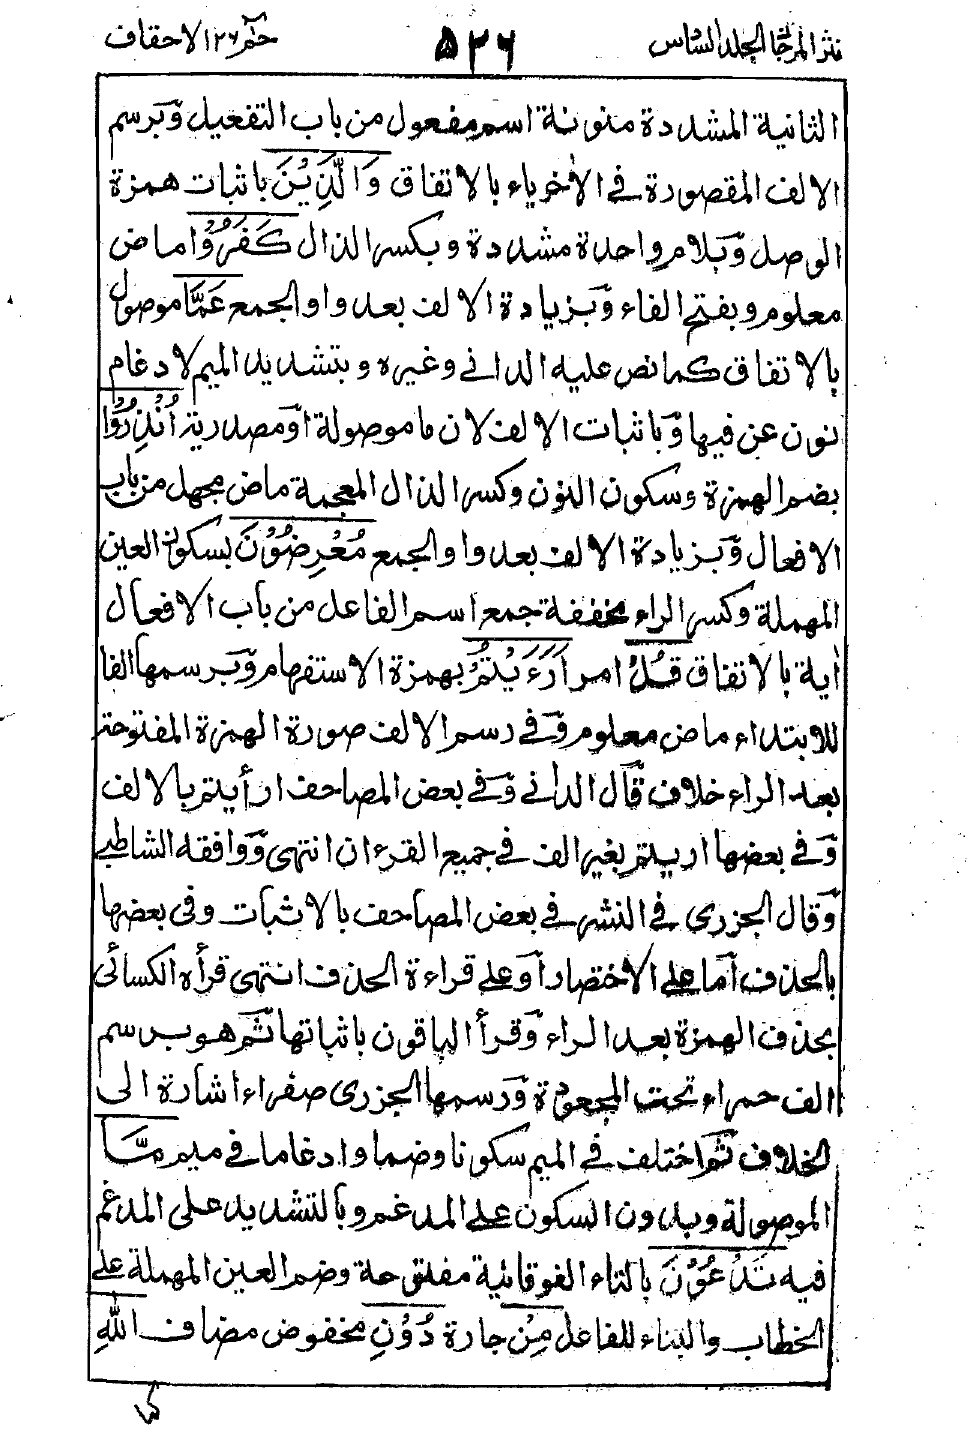 نثر المرجان الجلد السادس ٥٢٦ حٰم ١٢٦ الاحقاف
الثانية المشددة منونة اسم مفعول من باب التفعيل وَبرسم
الالف المقصورة في الاخر ياء بالاتفاق وَالَّذِيْنَ باثبات همزة
الوصل وَبلام واحدة مشددة وبكسر الذال كَفَرُوْا ماض
معلوم وبفتح الفاء وَبزيادة الالف بعد واو الجمع عَمَّا موصول
بالاتفاق كما نص عليه الداني وغيره وبتشديد الميم لادغام
نون عن فيها وَباثبات الالف لان ما موصولة اَومصدرية اُنْذِرُوْا
بضم الهمزة وسكون النون وكسر الذال المعجمة ماض مجهل من باب
الافعال وَبزيادة الالف بعد واو الجمع مُعْرِضُوْنَ بسكون العين
المهملة وكسر الراء مخففة جمع اسم الفاعل من باب الافعال
اٰية بالاتفاق قُلْ امر اَرَءَيْتُمْ بهمزة الاستفهام وَبرسمها الفا
للابتداء ماض معلوم وَفي رسم الالف صورة الهمزة المفتوحة
بعد الراء خلاف قَال الداني وَفي بعض المصاحف ارأيتم بالالف
وَفي بعضها اريتم بغير الف في جميع القرءان انتهى وَوافقه الشاطبي
وَقال الجزري في النشر في بعض المصاحف بالاثبات وفى بعضها
بالحذف اَما على الاختصار اَوعلى قراءة الحذف انتهى قرأه الكسائي
بحذف الهمزة بعد الراء وَقرأ الباقون باثباتها ثَم هو برسم
الف حمراء تحت المجعودة وَرسمها الجزرى صفراء اشارة الى
الخلاف ثَم اختلف في الميم سكونا وضما وادغاما في ميم مَّا
الموصولة وبدون السكون على المدغم وبالتشديد على المدغم
فيه تَدْعُوْنَ بالتاء الفوقانية مفتوحة وضم العين المهملة على
الخطاب والبناء للفاعل مِنْ جارة دُوْنِ مخفوض مضاف اللّٰهِ